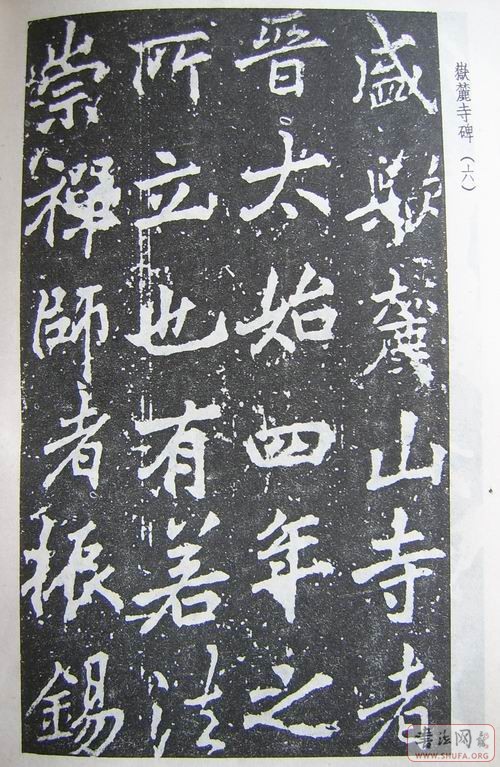 嶽麓寺碑
盛歟麓山寺者
晉太始四年之
所立也有若法
崇禪師者振錫
書法网
WWW.SHUFA.ORG